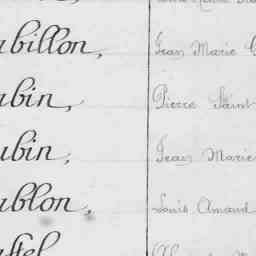 abillon, Jean Marie
abin, Pierre Saint
abin, Jean Marie
ablon, Louis Amand